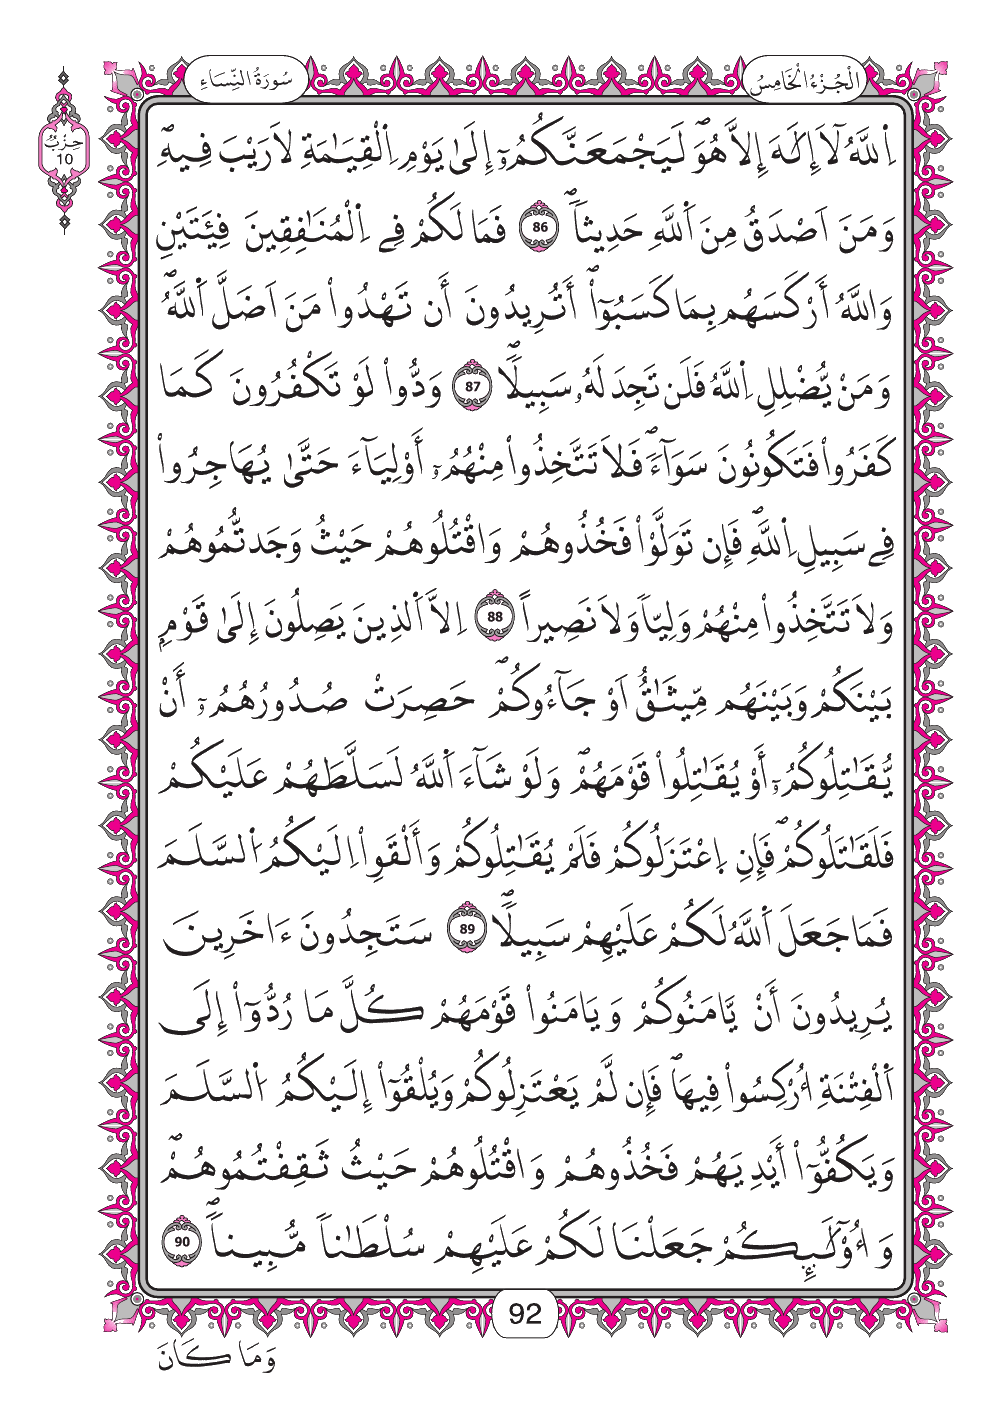 الْجُزْءُ الْخَامِسُ
سُورَةُ النِّسَاءِ
حِزْبُ
10
اِ۬للَّهُ لَآ إِلَٰهَ إِلاَّ هُوَۖ لَيَجْمَعَنَّكُمُۥٓ إِلَىٰ يَوْمِ اِ۬لْقِيَٰمَةِ لَا رَيْبَ فِيهِۖ
وَمَنَ اَصْدَقُ مِنَ اَ۬للَّهِ حَدِيثاٗۖ 86 فَمَا لَكُمْ فِے اِ۬لْمُنَٰفِقِينَ فِئَتَيْنِ
وَاللَّهُ أَرْكَسَهُم بِمَا كَسَبُوٓاْۖ أَتُرِيدُونَ أَن تَهْدُواْ مَنَ اَضَلَّ اَ۬للَّهُۖ
وَمَنْ يُّضْلِلِ اِ۬للَّهُ فَلَن تَجِدَ لَهُۥ سَبِيلاٗۖ 87 وَدُّواْ لَوْ تَكْفُرُونَ كَمَا
كَفَرُواْ فَتَكُونُونَ سَوَآءٗۖ فَلَا تَتَّخِذُواْ مِنْهُمُۥٓ أَوْلِيَآءَ حَتَّىٰ يُهَاجِرُواْ
فِے سَبِيلِ اِ۬للَّهِۖ فَإِن تَوَلَّوْاْ فَخُذُوهُمْ وَاقْتُلُوهُمْ حَيْثُ وَجَدتُّمُوهُمْ
وَلَا تَتَّخِذُواْ مِنْهُمْ وَلِيّاٗ وَلَا نَصِيراً 88 اِلاَّ اَ۬لذِينَ يَصِلُونَ إِلَىٰ قَوْمِۭ
بَيْنَكُمْ وَبَيْنَهُم مِّيثَٰقٌ اَوْ جَآءُوكُمْۖ حَصِرَتْ صُدُورُهُمُۥٓ أَنْ
يُّقَٰتِلُوكُمُۥٓ أَوْ يُقَٰتِلُواْ قَوْمَهُمْۖ وَلَوْ شَآءَ اَ۬للَّهُ لَسَلَّطَهُمْ عَلَيْكُمْ
فَلَقَٰتَلُوكُمْۖ فَإِنِ اِ۪عْتَزَلُوكُمْ فَلَمْ يُقَٰتِلُوكُمْ وَأَلْقَوِاْ اِلَيْكُمُ اُ۬لسَّلَمَ
فَمَا جَعَلَ اَ۬للَّهُ لَكُمْ عَلَيْهِمْ سَبِيلاٗۖ 89 سَتَجِدُونَ ءَاخَرِينَ
يُرِيدُونَ أَنْ يَّامَنُوكُمْ وَيَامَنُواْ قَوْمَهُمْ كُلَّ مَا رُدُّوٓاْ إِلَى
اَ۬لْفِتْنَةِ أُرْكِسُواْ فِيهَاۖ فَإِن لَّمْ يَعْتَزِلُوكُمْ وَيُلْقُوٓاْ إِلَيْكُمُ اُ۬لسَّلَمَ
وَيَكُفُّوٓاْ أَيْدِيَهُمْ فَخُذُوهُمْ وَاقْتُلُوهُمْ حَيْثُ ثَقِفْتُمُوهُمْۖ
وَأُوْلَٰٓئِكُمْ جَعَلْنَا لَكُمْ عَلَيْهِمْ سُلْطَٰناٗ مُّبِيناٗۖ 90
92
وَمَا كَانَ